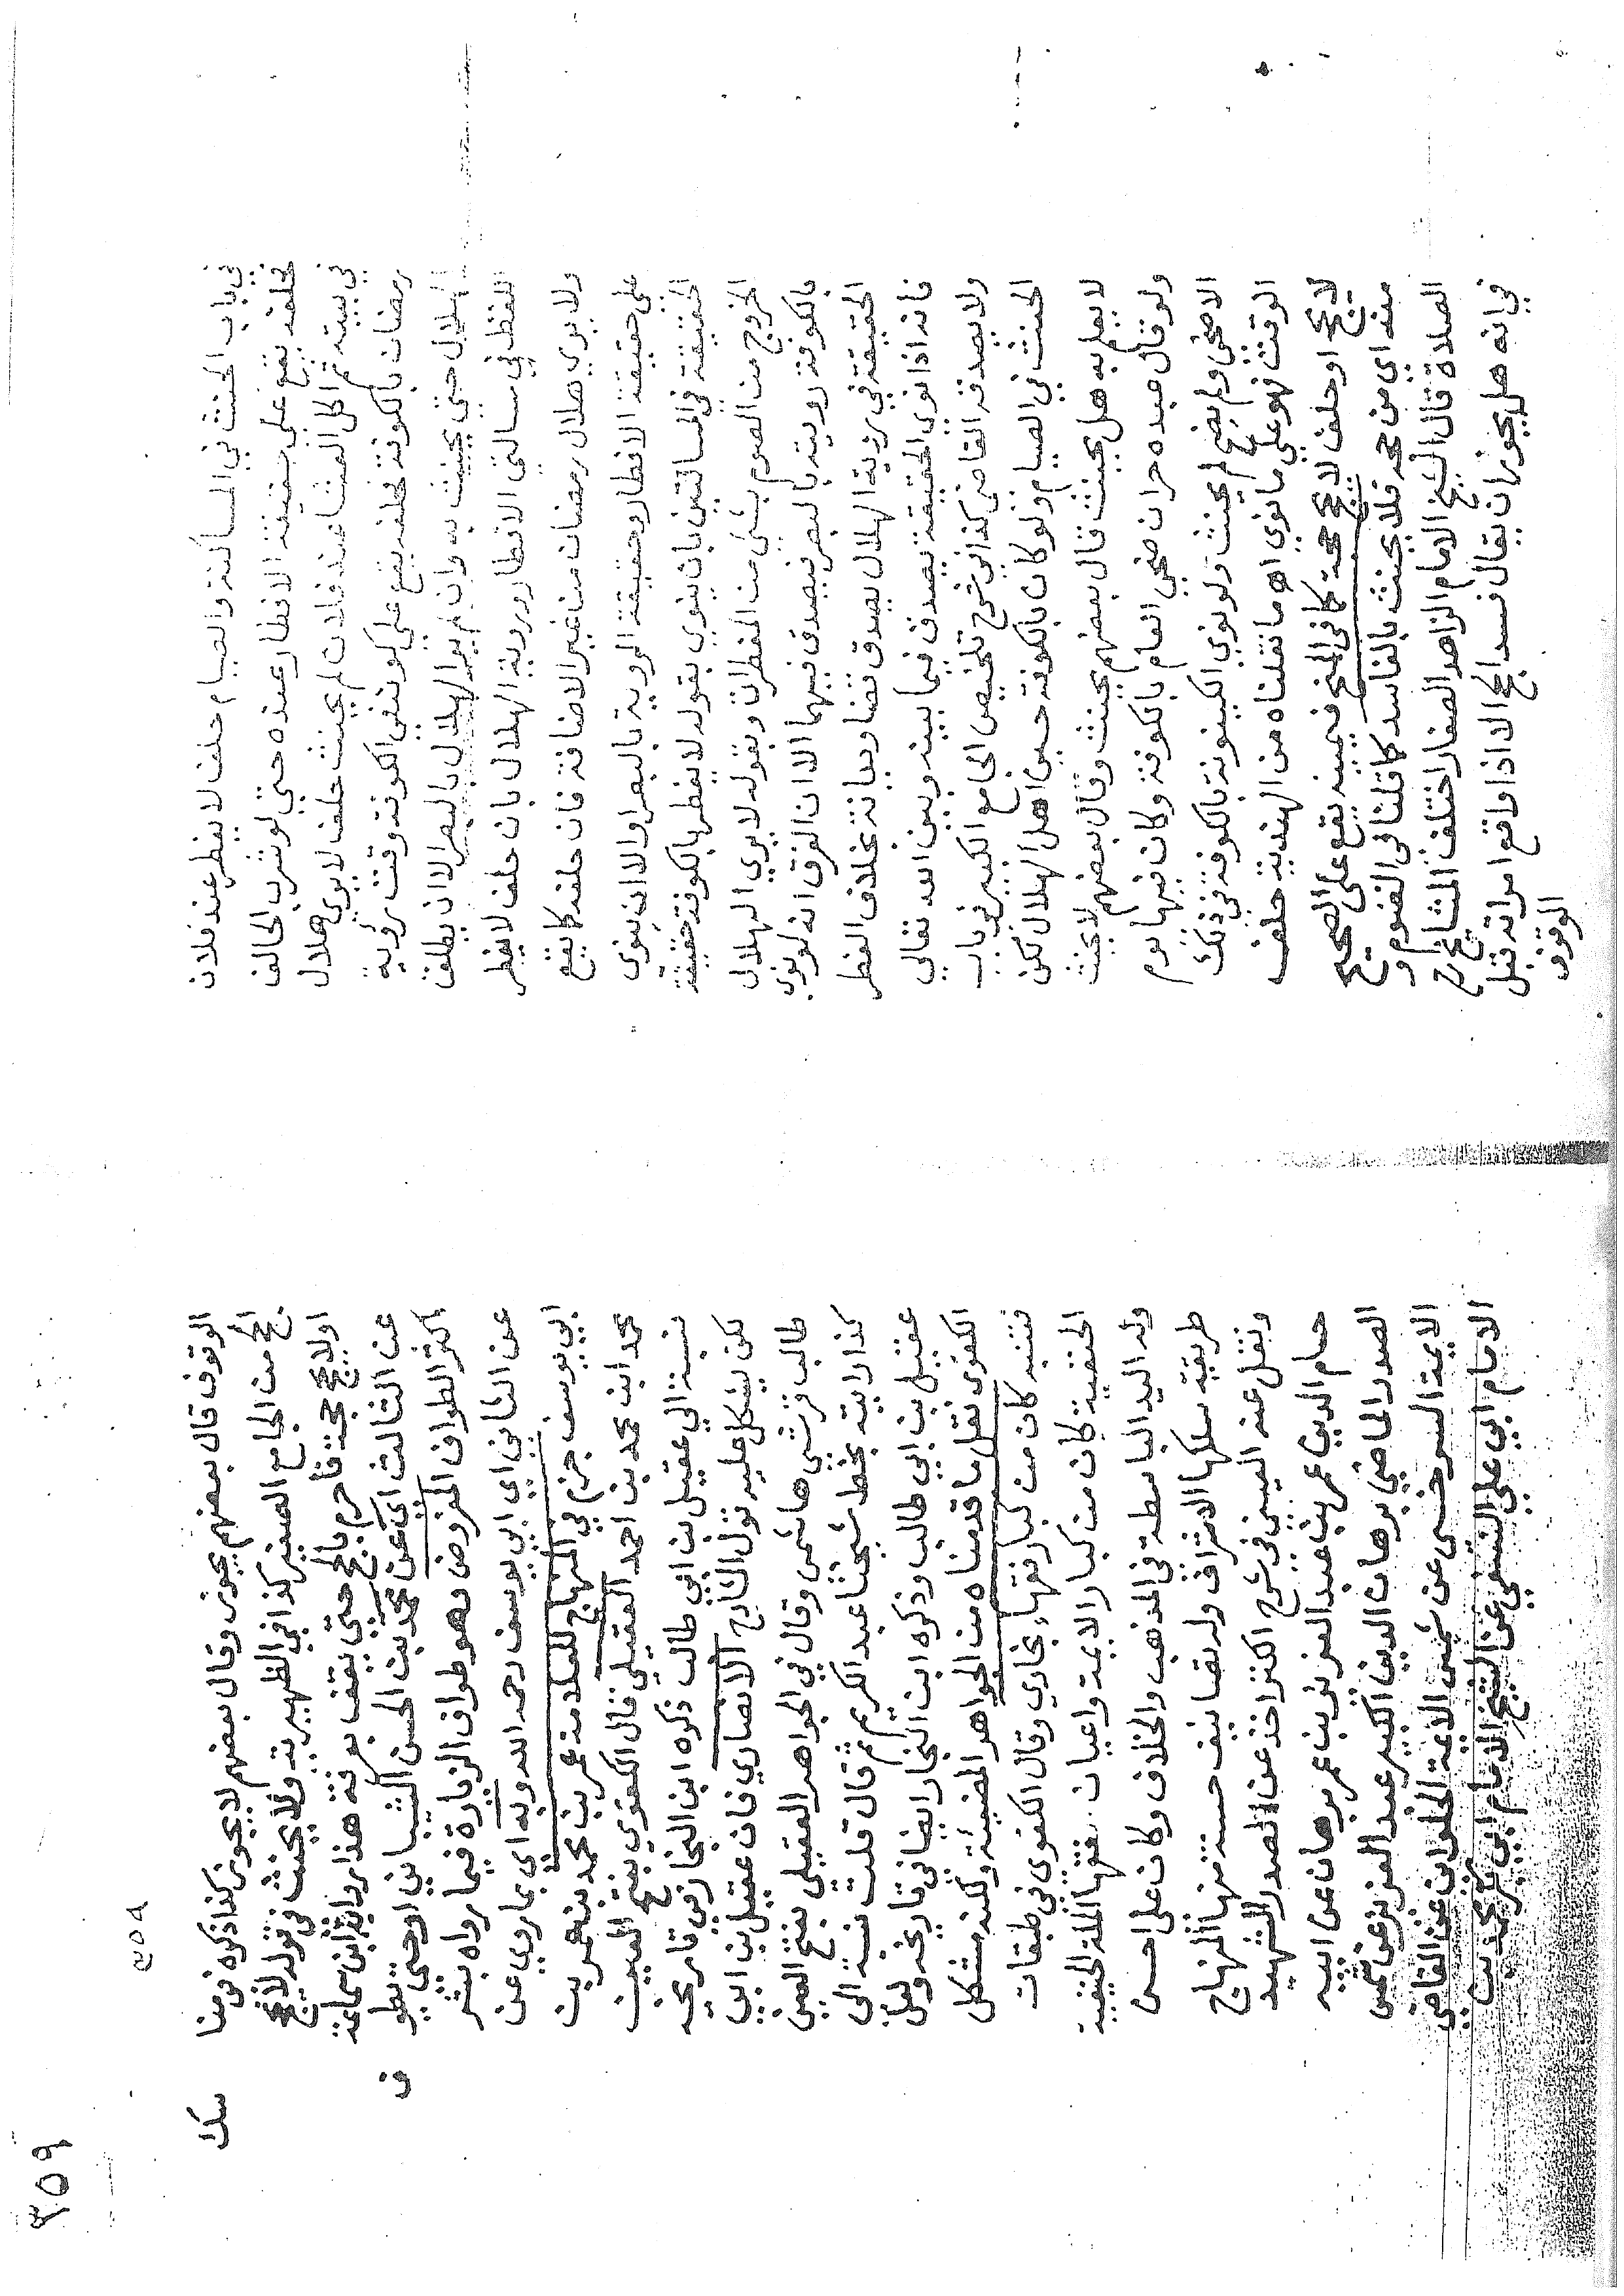 في باب الحنث في المساكنة والصيام حلف لا يفطر عند فلان
فحلفه يقع علي حقيقة الافطار عنده حتي لو شرب الحالف
في بيته ثم اكل العشا عند فلان لم يحنث حلف لا يري هلال
رمضان بالكوفة فحلفه يقع علي كونه في الكوفة وقت رؤية
الهلال حتي يحنث به وان لم ير الهلال بالبصر الا ان يطلق
اللفظ في سالتي الافطار وروية الهلال بان حلف لا يفطر
ولا يري هلال رمضان من غير الاضافة فان حلفه كما يقع
علي حقيقة الافطار وحقيقة الروية بالبصر او الا ان ينوي
الحقيقة في المسالتين بان ينوي بقوله لا يفطر بالكوفة حقيقة
الخروج من الصوم بشي من المفطرات وبقوله لا يري الهلال
بالكوفة رويته بالبصر فيصدق فيهما الا ان الفرق انه لو نوي
الحقيقة في رؤية الهلال يصدق قضا وديانة بخلاف الفطر
فانه اذا نوي الحقيقة يصدق فيما بينه وبين الله تعالي
ولا يصدقه القاضي كذا في شرح تلخيص الجامع الكبير في باب
الحنث في الصيام ولو كان بالكوفة حين اهل الهلال لكن
لا يعلم به هل يحنث قال بعضهم يحنث وقال بعضهم لا يحنث
ولو قال عبده حر ان ضحي العام بالكوفة وكان فيها يوم
الاضحي ولم يضح لم يحنث ولو نوي الكينونة بالكوفة في ذلك
الوقت فهو علي ما نوي اه ما نقلناه من الهندية حلف
لا يحج او حلف لا يحج حجة كما في المنح فيمينه يقع علي الصحيح
منه اي من حج فلا يحنث بالفاسد كما قلنا في الصوم و
الصلاة قال الشيخ الامام الزاهد الصفار اختلف المشايخ رح
في انه هل يجوز ان يقال فسد الحج الا اذا واقع امراته قبل
الوقوف
٣٥٩
٣٥٩
الوقوف قال بعضهم يجوز وقال بعضهم لا يجوز كذا ذكره في مناسك
الحج من الجامع الصغير كذا في الظهيرية ولا يحنث في قوله لا يحج
او لا يحج حجة فاحرم بالحج حتي يقف بعرفة هذا رواية ابن سماعة
عن الثالث اي عن محمد بن الحسن الشيباني او حتي يطوف
اكثر الطواف المفروض وهو طواف الزيارة فيما رواه بشر
عن الثاني اي ابي يوسف رحمه الله وبه اي بما روي عن
ابي يوسف جزم في المنهاج للعلامة عمر بن محمد بن عمر بن
محمد ابن محمد بن احمد العقيلي قال الكفوي بفتح العين
نسبة الي عقيل بن ابي طالب ذكره ابن النجار في تاريخه
لكن يشكل عليه قول الشارح الانصاري فان عقيل بن ابي
طالب قرشي هاشمي وقال في الجواهر العقيلي بفتح العين
كذا رايته بخط شيخنا عبد الكريم ثم قال قلت نسبة الي
عقيل بن ابي طالب وذكره ابن النجار ايضا في تاريخه ولعل
الكفوي نقل ما قدمناه من الجواهر المضيئة ولكنه مشكل
فتنبه كان من كبار فقهاء بخاري وقال الكفوي في طبقات
الحنفية كان من كبار الايمة واعيان فقها الملة الحنيفية
وله اليد الباسطة في المذهب والخلاف وكان علي احسن
طريقة سلكها الاشراف وله تصانيف حسنة منها المنهاج
ونقل عنه العيني في شرح الكنز اخذ عن الصدر الشهيد
حسام الدين عمر بن عبد العزيز بن عمر برهان عن ابيه
الصدر الماضي برهان الدين الكبير عبد العزيز عن شمس
الايمة السرخسي عن شمس الايمة الحلواني عن القاضي
الامام ابي علي النسفي عن الشيخ الامام ابي بكر محمد بن